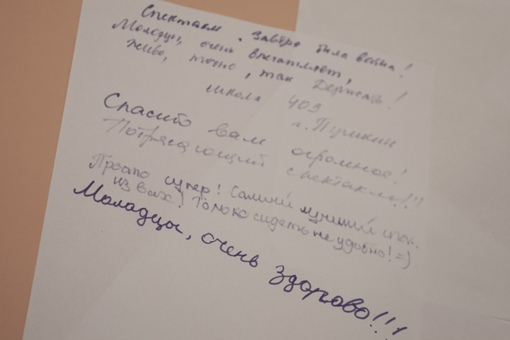 Спектакль "Завтра была война"!
Молодцы, очень впечатляет,
живо, точно, так держать!
школа 403
г. Пушкин
Спасибо вам огромное!
Потрясающий спектакль!!!
Просто супер! Самый лучший спек.
из всех! Только сидеть не удобно! =)
Молодцы, очень здорово!!!